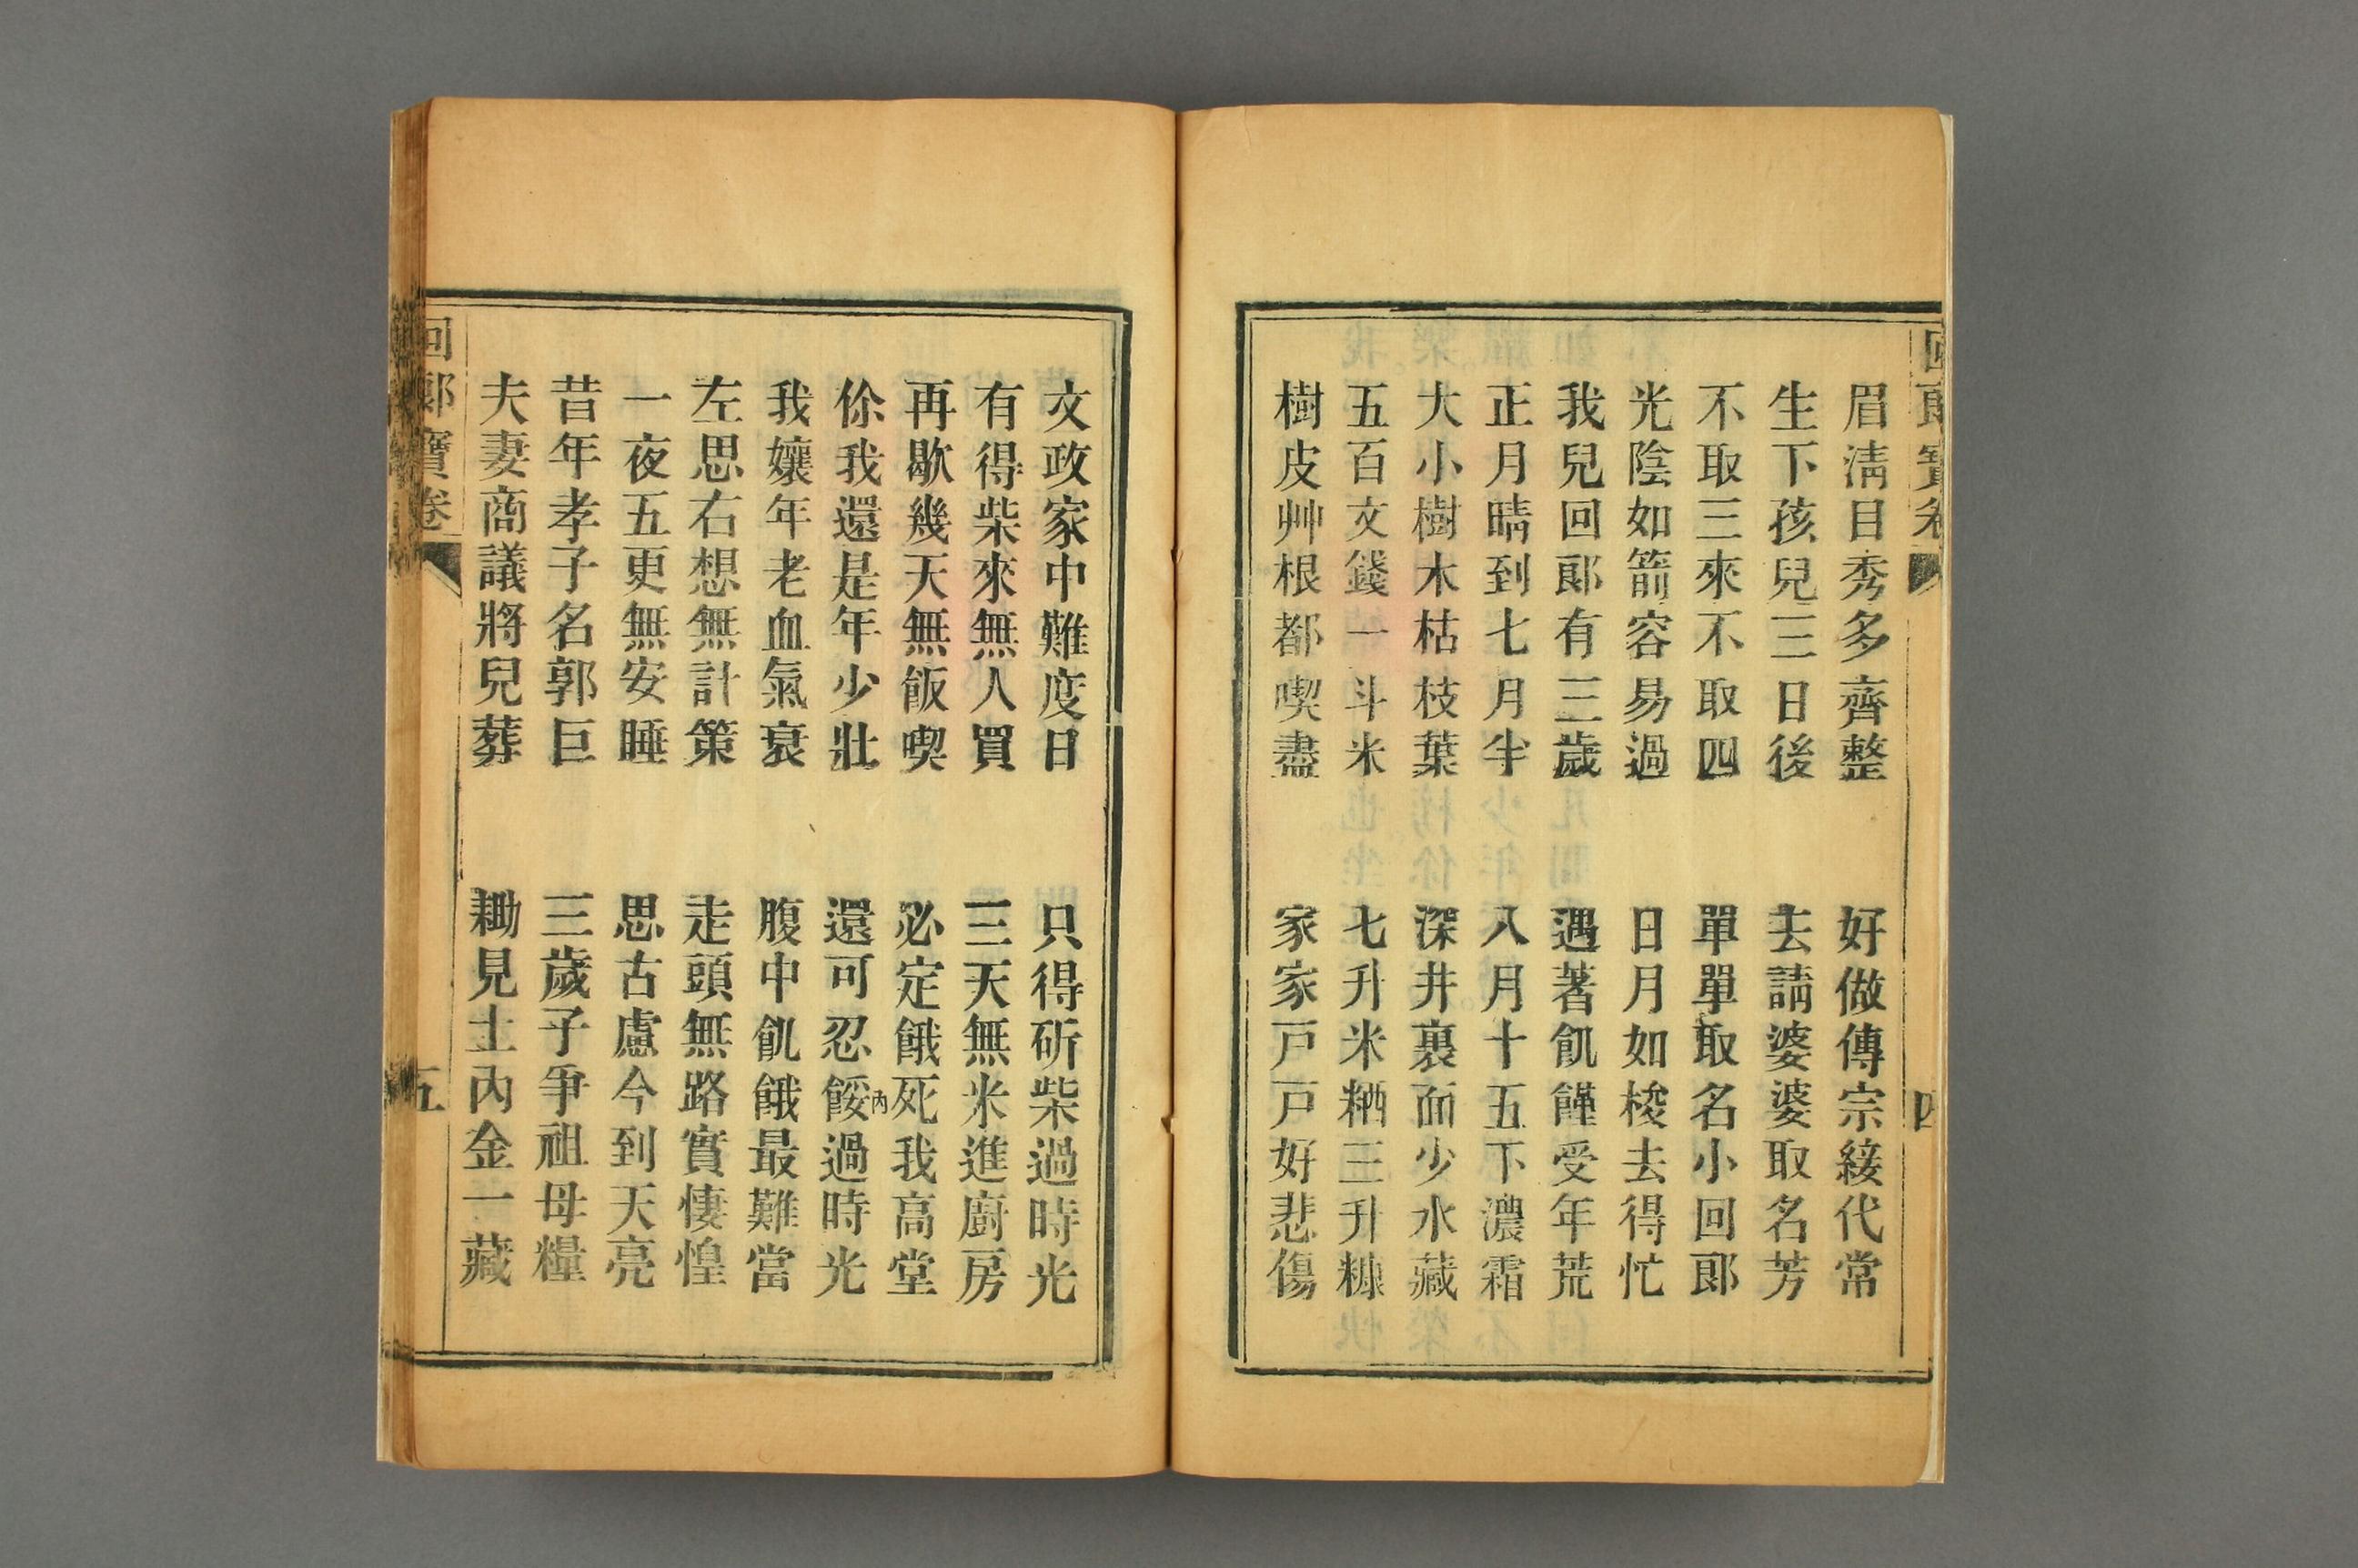 回郎寶卷
四
眉淸目秀多齊整　好做傳宗綾代常
生下孩兒三日後　去請婆婆取名芳
不取三來不取四　單單取名小回郎
光陰如箭容易過　日月如梭去得忙
我兒回郎有三歲　遇著飢饉受年荒
正月晴到七月半　八月十五下濃霜
大小樹木枯枝葉　深井裏面少水藏
五百文錢一斗米　七升米粞三升糠
樹皮艸根都喫盡　家家戸戸好悲傷
文政家中難度日　只得斫柴過時光
有得柴來無人買　三天無米進廚房
再歇幾天無飯喫　必定餓死我高堂
你我還是年少壯　還可忍餒內過時光
我孃年老血氣衰　腹中飢餓最難當
左思右想無計策　走頭無路實悽惶
一夜五更無安睡　思古慮今到天亮
昔年孝子名郭巨　三歲子爭祖母糧
夫妻商議將兒葬　耡見土內金一藏
回郎寶卷
五